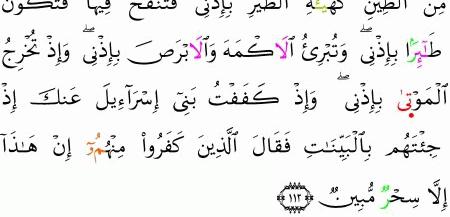 مِنَ ٱلطِّينِ كَهَيْـَٔةِ ٱلطَّيْرِ بِإِذْنِى فَتَنفُخُ فِيهَا فَتَكُونُ
طَـٰٓئِرًۢا بِإِذْنِى ۖ وَتُبْرِئُ ٱلَاكْمَهَ وَٱلَابْرَصَ بِإِذْنِى ۖ وَإِذْ تُخْرِجُ
ٱلْمَوْتىٰ بِإِذْنِى ۖ وَإِذْ كَفَفْتُ بَنِىٓ إِسْرَآءِيلَ عَنكَ إِذْ
جِئْتَهُم بِٱلْبَيِّنَـٰتِ فَقَالَ ٱلَّذِينَ كَفَرُوا۟ مِنْهُمُۥٓ إِنْ هَـٰذَآ
إِلَّا سِحْرٌ مُّبِينٌ ١١٢